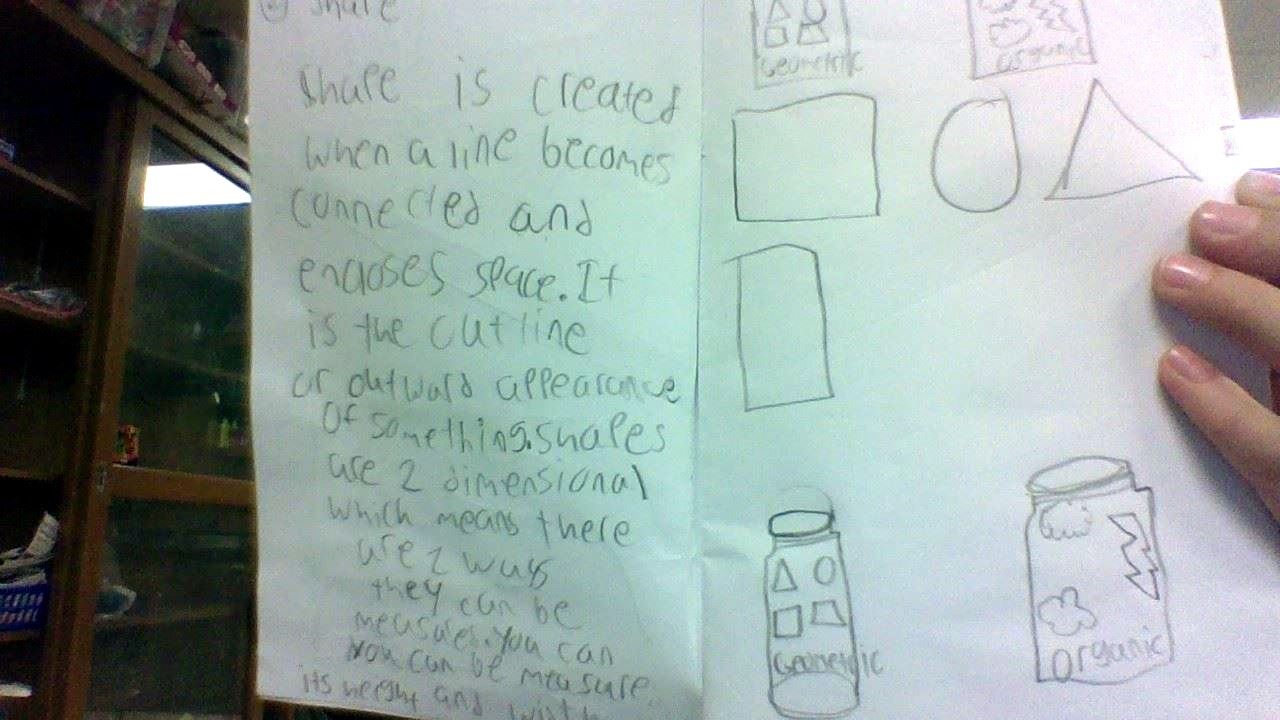 shape
shape is created
when a line becomes
connected and
encloses space. It
is the outline
or outward appearance
of something. shapes
are 2 dimensional
which means there
are 2 ways
they can be
measures. you can
you can be measure
its height and width
Geometric
organic
Geometric
Organic